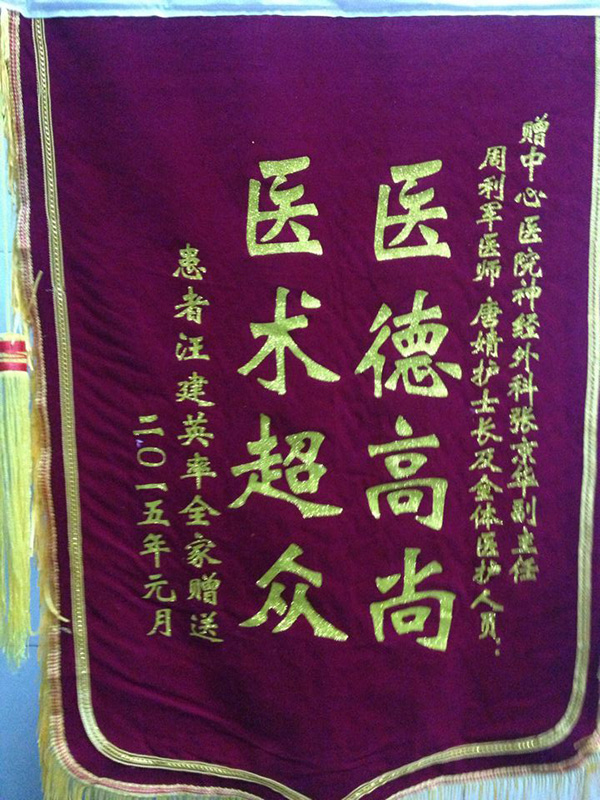 赠中心医院神经外科张京华副主任
周利军医师 唐婧护士长及全体医护人员:
医德高尚
医术超众
患者汪建英率全家赠送
二〇一五年元月